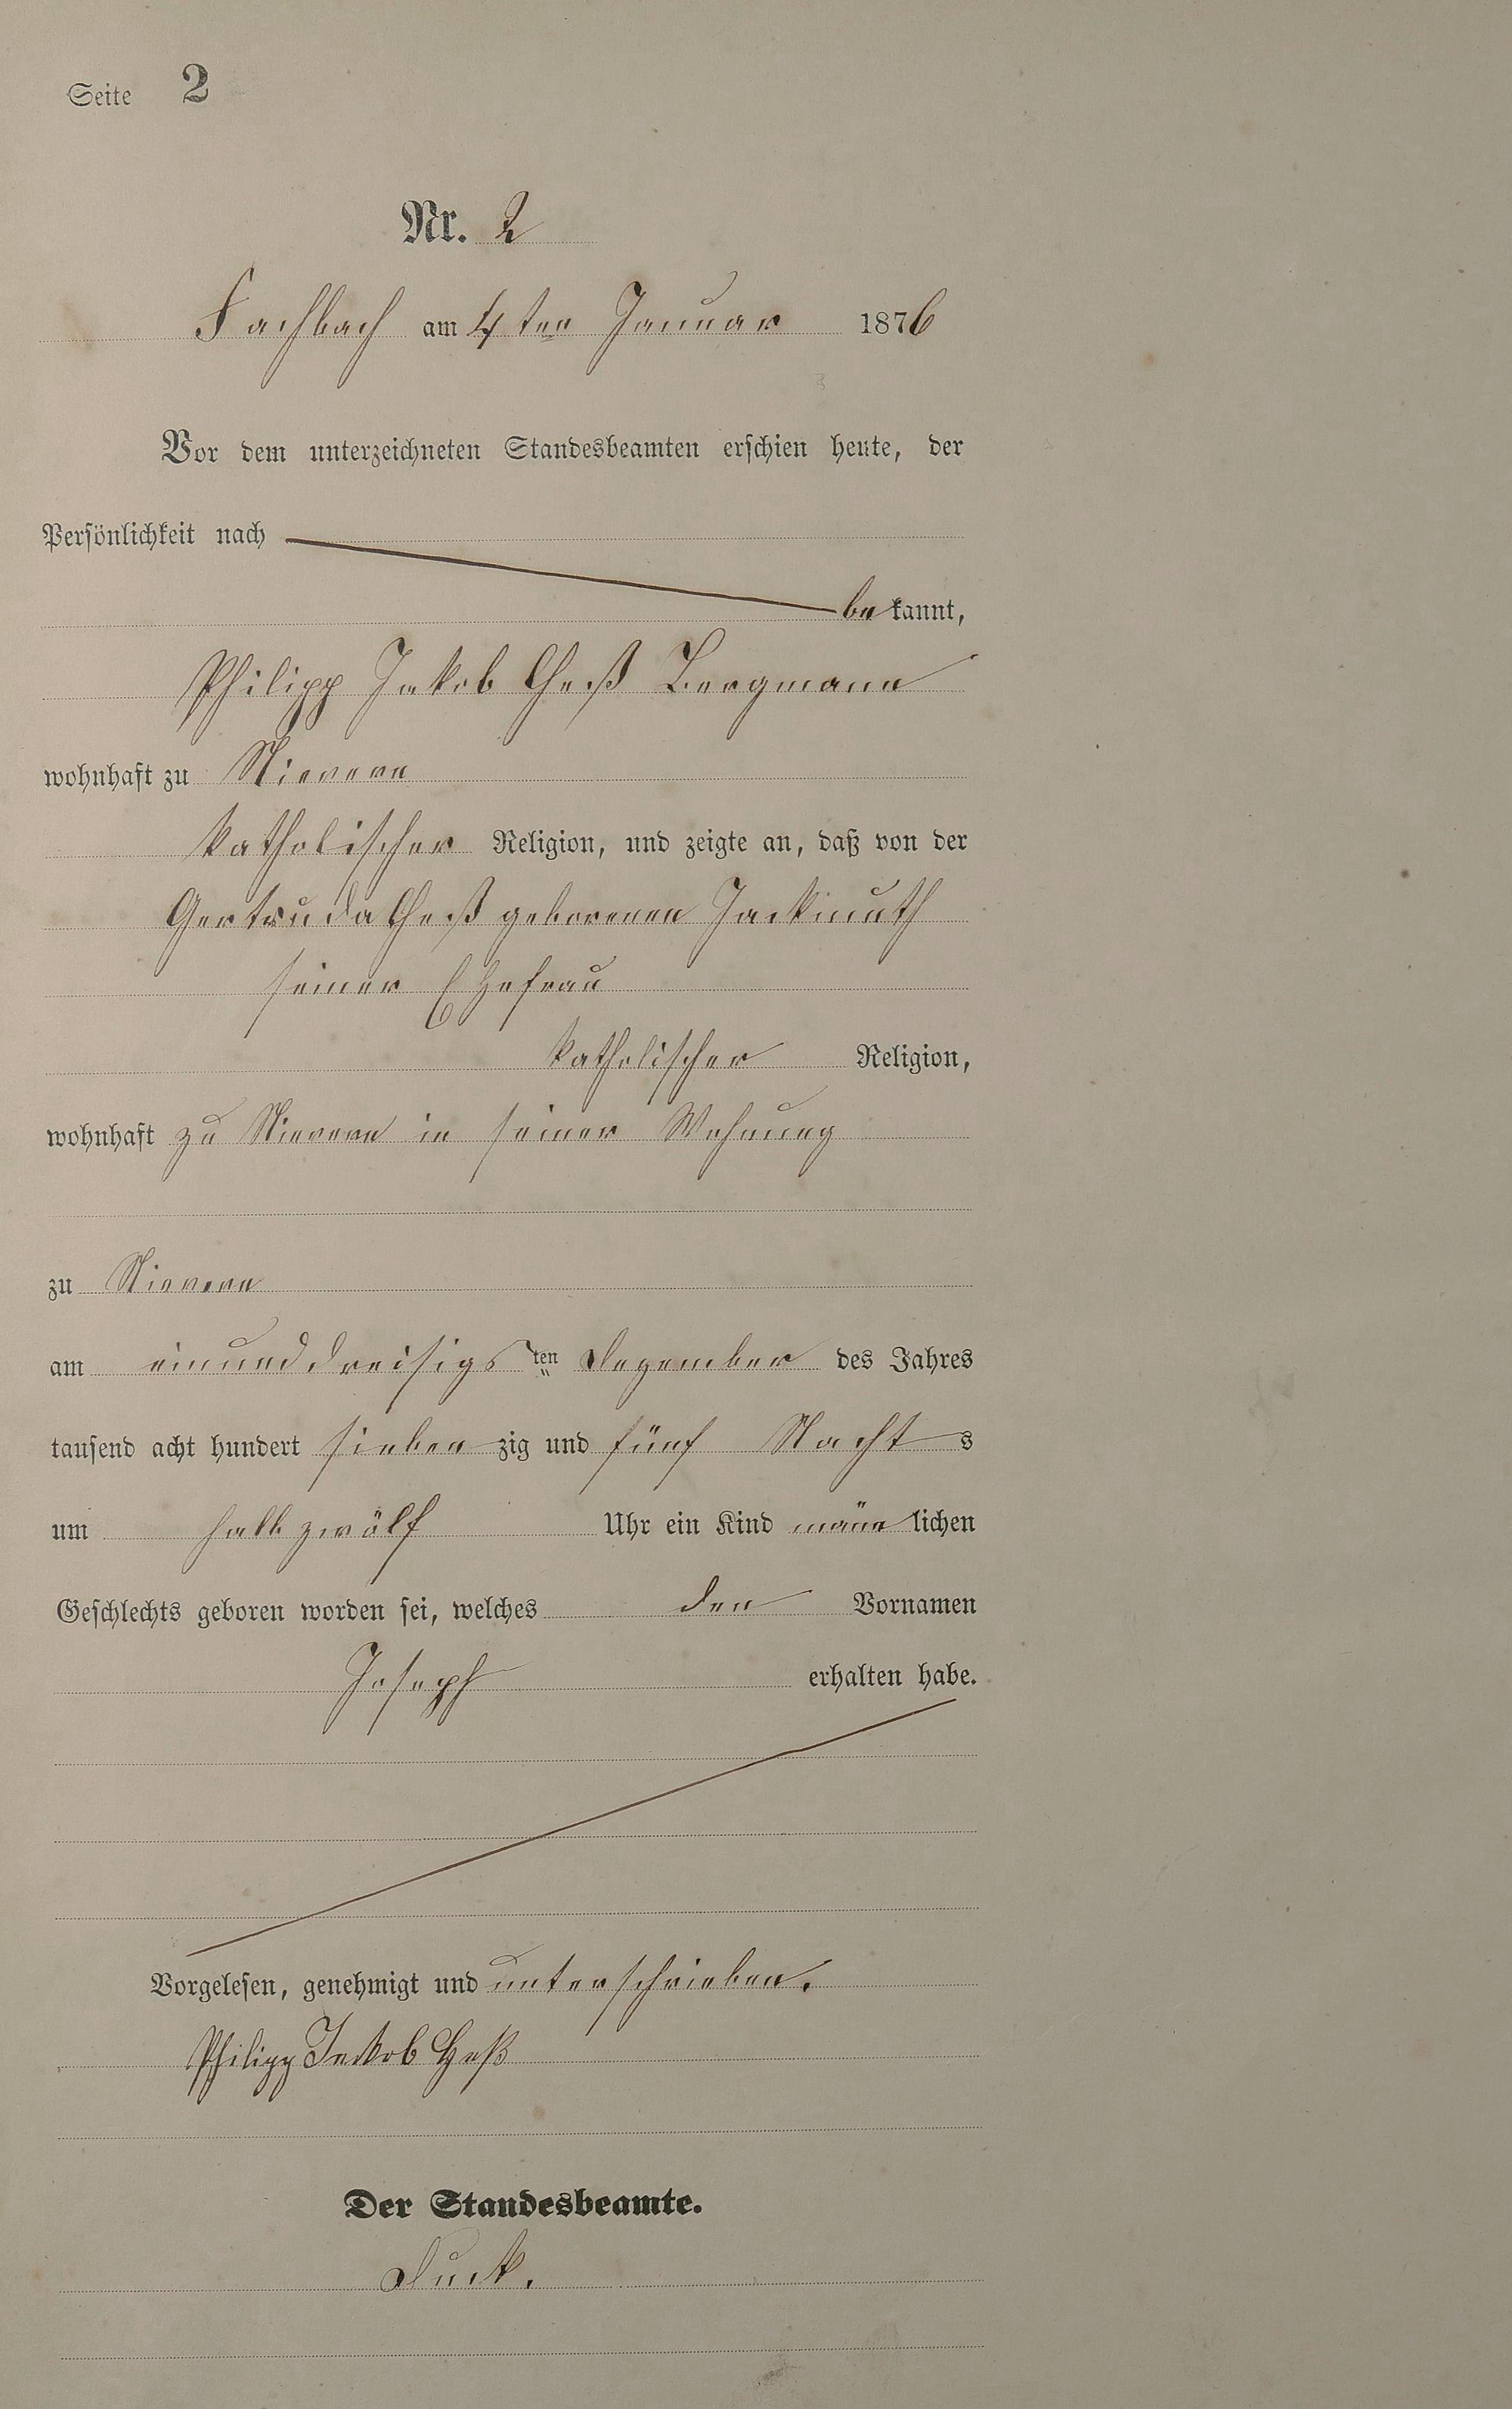 Seite 2
Nr. 2
Fachbach am 4ten Januar 1876
Vor dem unterzeichneten Standesbeamten erschien heute, der
Persönlichkeit nach
bekannt,
Philipp Jakob Heß Bergmann
wohnhaft zu Nievern
katholischer Religion, und zeigte an, daß von der
Gertruda Heß geborenen
seiner Ehefrau
katholischer Religion,
wohnhaft zu Nievern in seiner Wohnung
zu Nievern
am einunddreisigsten Dezember des Jahres
tausend acht hundert siebenzig und fünf Nachts
um halb zwölf Uhr ein Kind män̄lichen
Geschlechts geboren worden sei, welches den Vornamen
Joseph erhalten habe.
Vorgelesen, genehmigt und unterschrieben.
Philipp Jakob Heß
Der Standesbeamte.